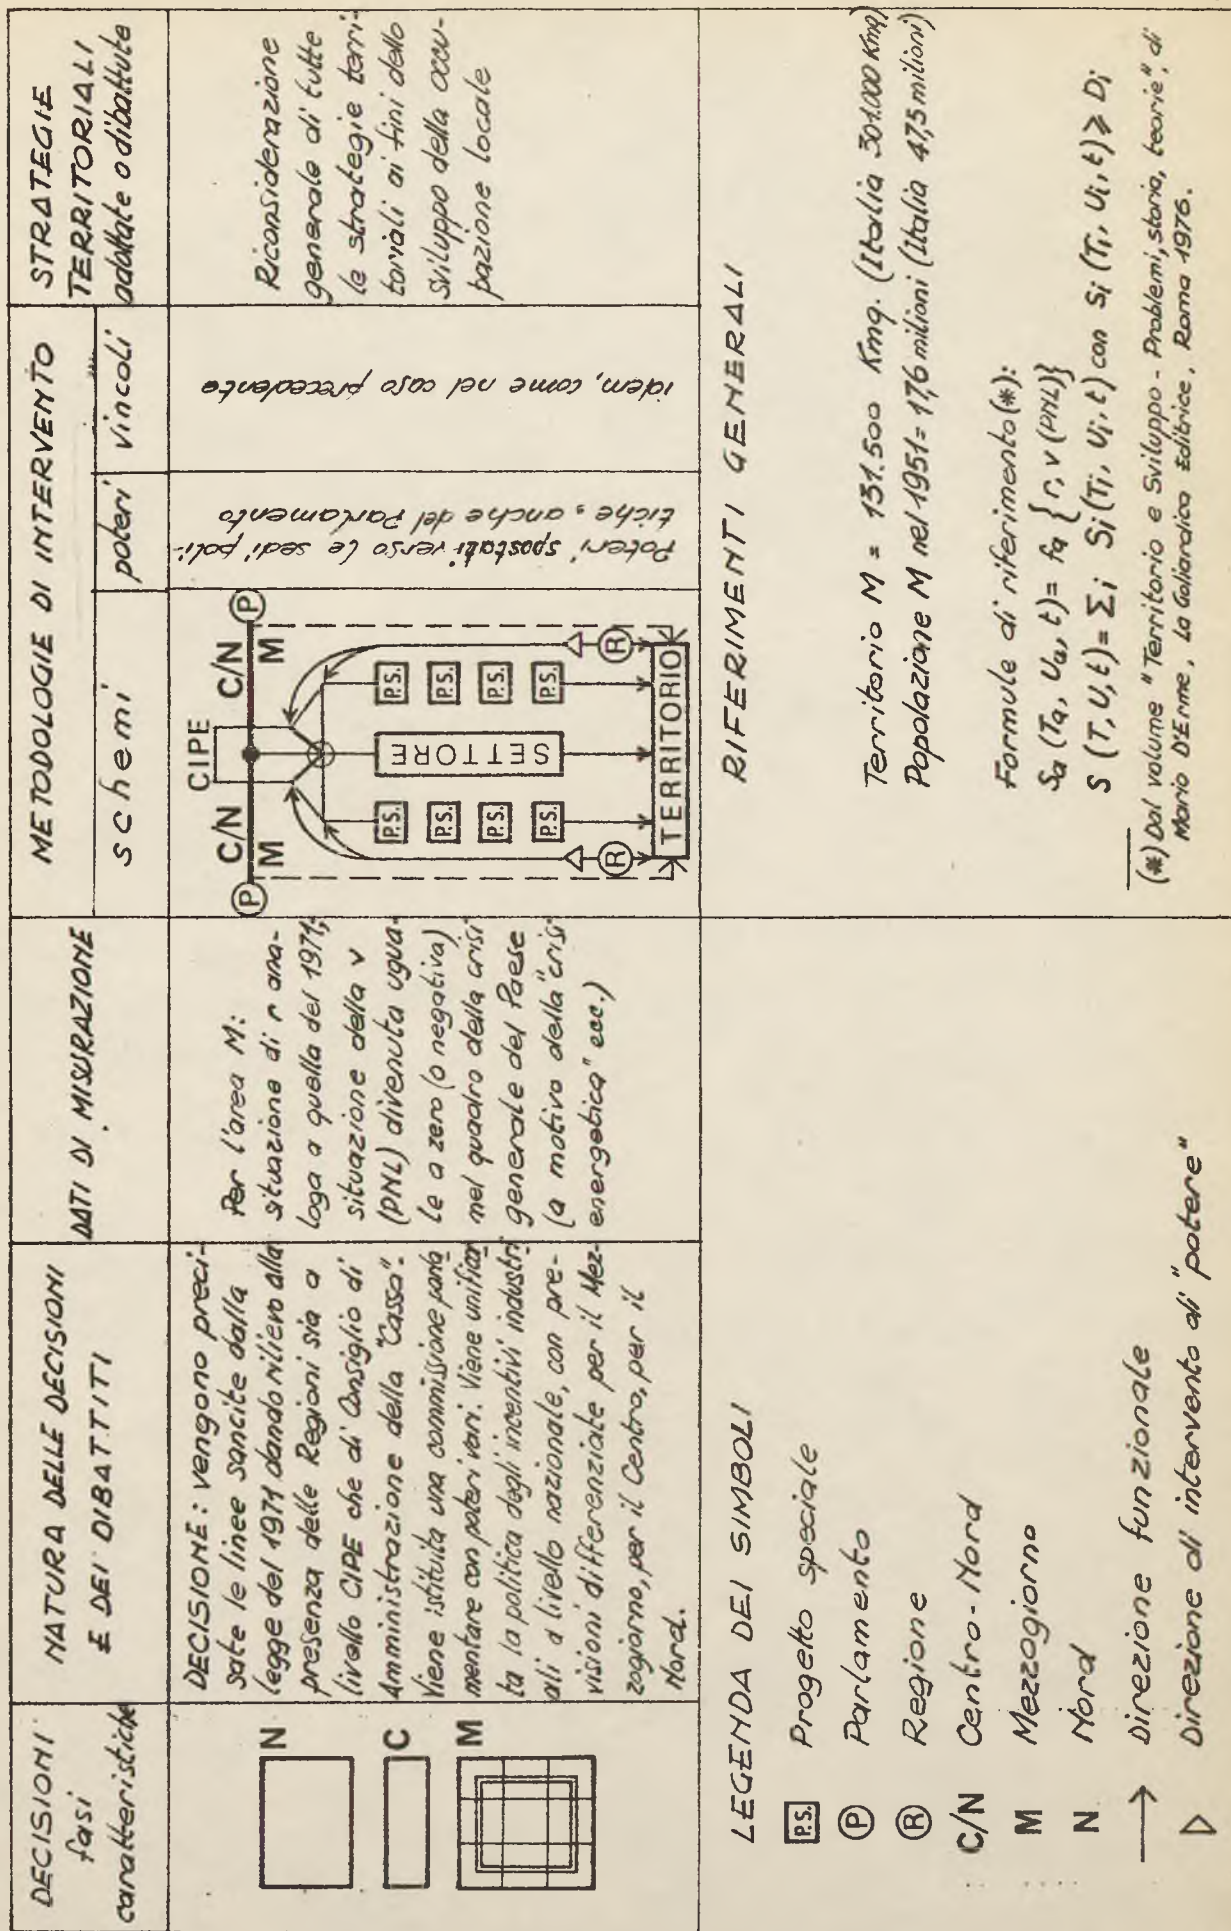 DECISIONI
fasi
caratteristiche
NATURA DELLE DECISIONI
E DEI DIBATTITI
DATI DI MISURAZIONE
METODOLOGIE DI INTERVENTO
schemi
poteri
vincoli
STRATEGIE
TERRITORIALI
adottate o dibattute
N
C
M
DECISIONE: vengono preci-
sate le linee sancite dalla
legge del 1971 dando rilievo alla
presenza delle Regioni sia a
livello CIPE che di Consiglio di
Amministrazione della "Cassa".
Viene istituita una commissione parla
mentare con poteri vari. Viene unifica
ta la politica degli incentivi industri
ali a livello nazionale, con pre-
visioni differenziate per il Mez-
zogiorno, per il Centro, per il
Nord.
Per l'area M:
situazione di r ana-
loga a quella del 1971;
situazione della v
(PNL) divenuta ugua-
le a zero (o negativa)
nel quadro della crisi
generale del Paese
(a motivo della "crisi
energetica" ecc.)
CIPE
P C/N C/N P
M M
P.S. P.S.
P.S. P.S.
P.S. P.S.
P.S. P.S.
SETTORE
R R
TERRITORIO
Poteri spostati verso le sedi poli-
tiche, anche del Parlamento
idem, come nel caso precedente
Riconsiderazione
generale di tutte
le strategie terri-
toriali ai fini dello
sviluppo della occu-
pazione locale
LEGENDA DEI SIMBOLI
P.S. Progetto speciale
P Parlamento
R Regione
C/N Centro-Nord
M Mezzogiorno
N Nord
→ Direzione funzionale
▷ Direzione di intervento di "potere"
RIFERIMENTI GENERALI
Territorio M = 131.500 Kmq. (Italia 301.000 Kmq)
Popolazione M nel 1951= 17,6 milioni (Italia 47,5 milioni)
Formule di riferimento(*):
Sa (Ta, Ua, t)= fa { r, v (PNL)}
S (T, U, t)= Σi Si (Ti, Ui, t) con Si (Ti, Ui, t) ⩾ Di
(*) Dal volume "Territorio e Sviluppo - Problemi, storia, teorie", di
Mario D'Erme, La Goliardica Editrice, Roma 1976.